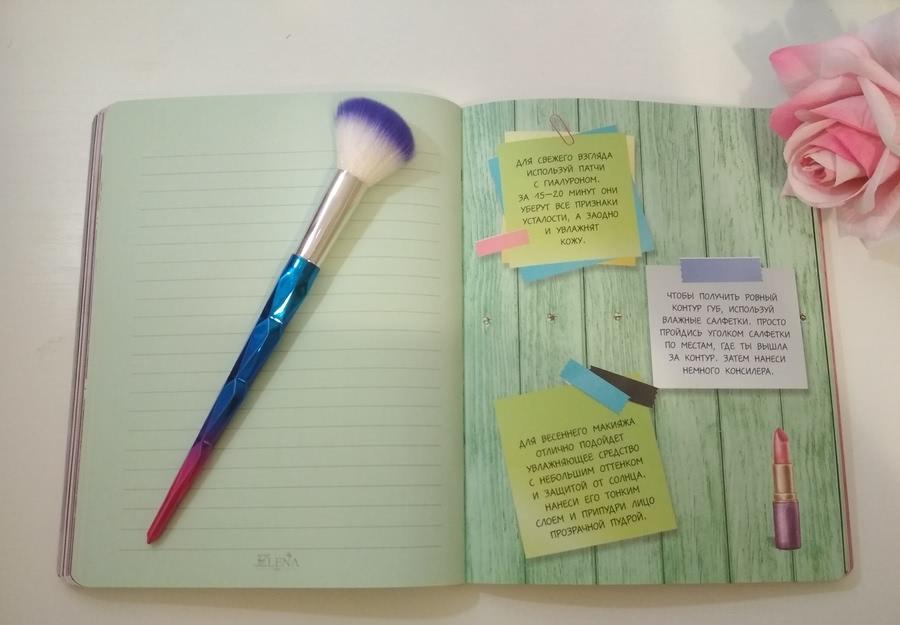 ELENA
ДЛЯ СВЕЖЕГО ВЗГЛЯДА
ИСПОЛЬЗУЙ ПАТЧИ
С ГИАЛУРОНОМ.
ЗА 15–20 МИНУТ ОНИ
УБЕРУТ ВСЕ ПРИЗНАКИ
УСТАЛОСТИ, А ЗАОДНО
И УВЛАЖНЯТ
КОЖУ.
ЧТОБЫ ПОЛУЧИТЬ РОВНЫЙ
КОНТУР ГУБ, ИСПОЛЬЗУЙ
ВЛАЖНЫЕ САЛФЕТКИ. ПРОСТО
ПРОЙДИСЬ УГОЛКОМ САЛФЕТКИ
ПО МЕСТАМ, ГДЕ ТЫ ВЫШЛА
ЗА КОНТУР. ЗАТЕМ НАНЕСИ
НЕМНОГО КОНСИЛЕРА.
ДЛЯ ВЕСЕННЕГО МАКИЯЖА
ОТЛИЧНО ПОДОЙДЕТ
УВЛАЖНЯЮЩЕЕ СРЕДСТВО
С НЕБОЛЬШИМ ОТТЕНКОМ
И ЗАЩИТОЙ ОТ СОЛНЦА.
НАНЕСИ ЕГО ТОНКИМ
СЛОЕМ И ПРИПУДРИ ЛИЦО
ПРОЗРАЧНОЙ ПУДРОЙ.